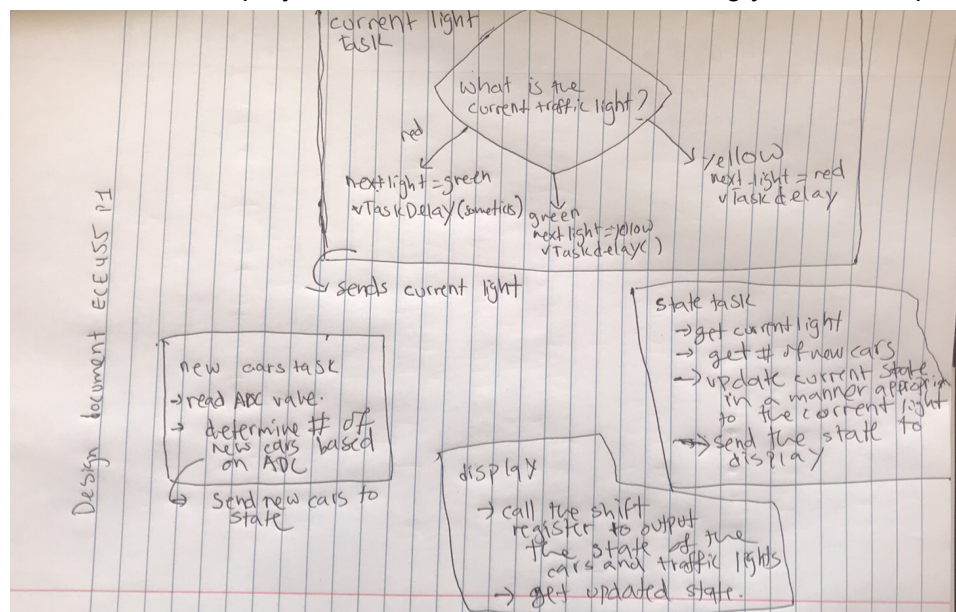 current light
task
what is the
current traffic light?
red
next light = green
vTaskDelay(sometics)
green
next light = yellow
vTaskdelay( )
yellow
next light = red
vTask delay
sends current light
Design document ECE455 P1
new cars task
→ read ADC value.
→ determine # of
new cars based
on ADC
→ send new cars to
state
state task
→ get current light
→ get # of new cars
→ update current state
in a manner
to the current light
→ send the state to
display
display
→ call the shift
register to output
the state of the
cars and traffic lights
→ get updated state.